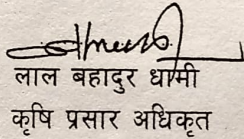 लाल बहादुर धामी
कृषि प्रसार अधिकृत